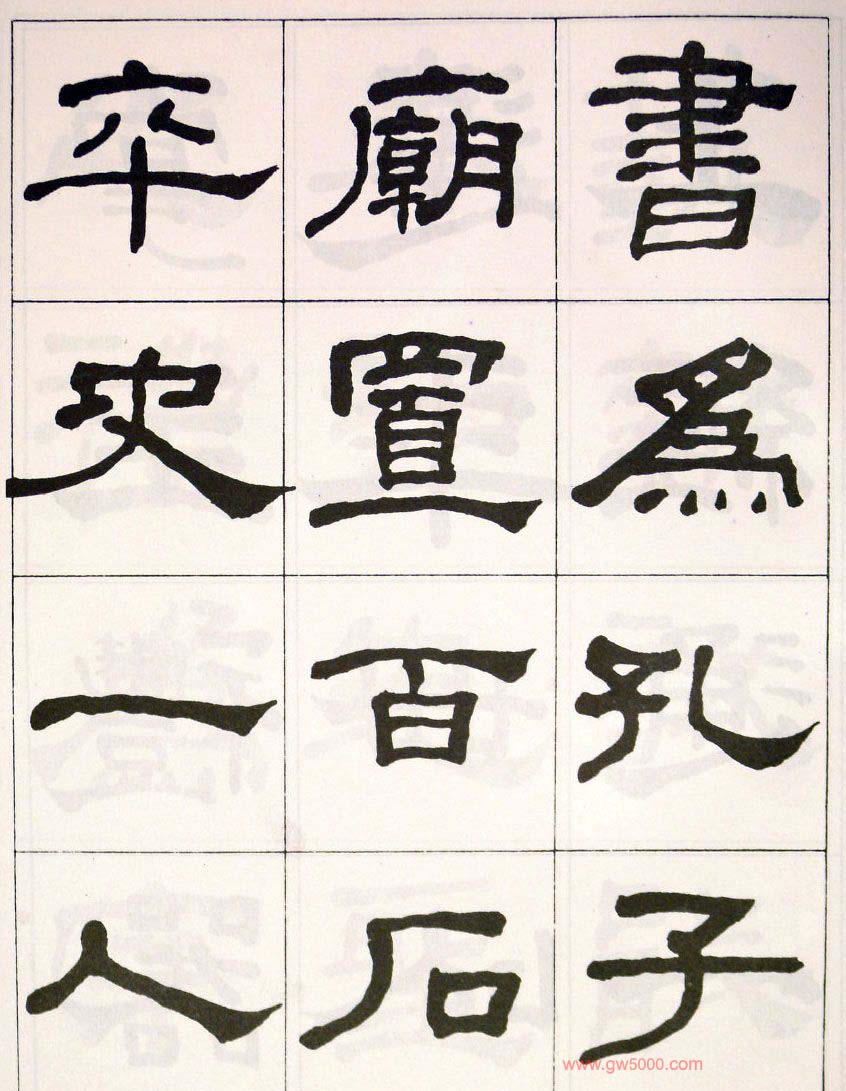 書為孔子
廟置百石
卒史一人
www.gw5000.com